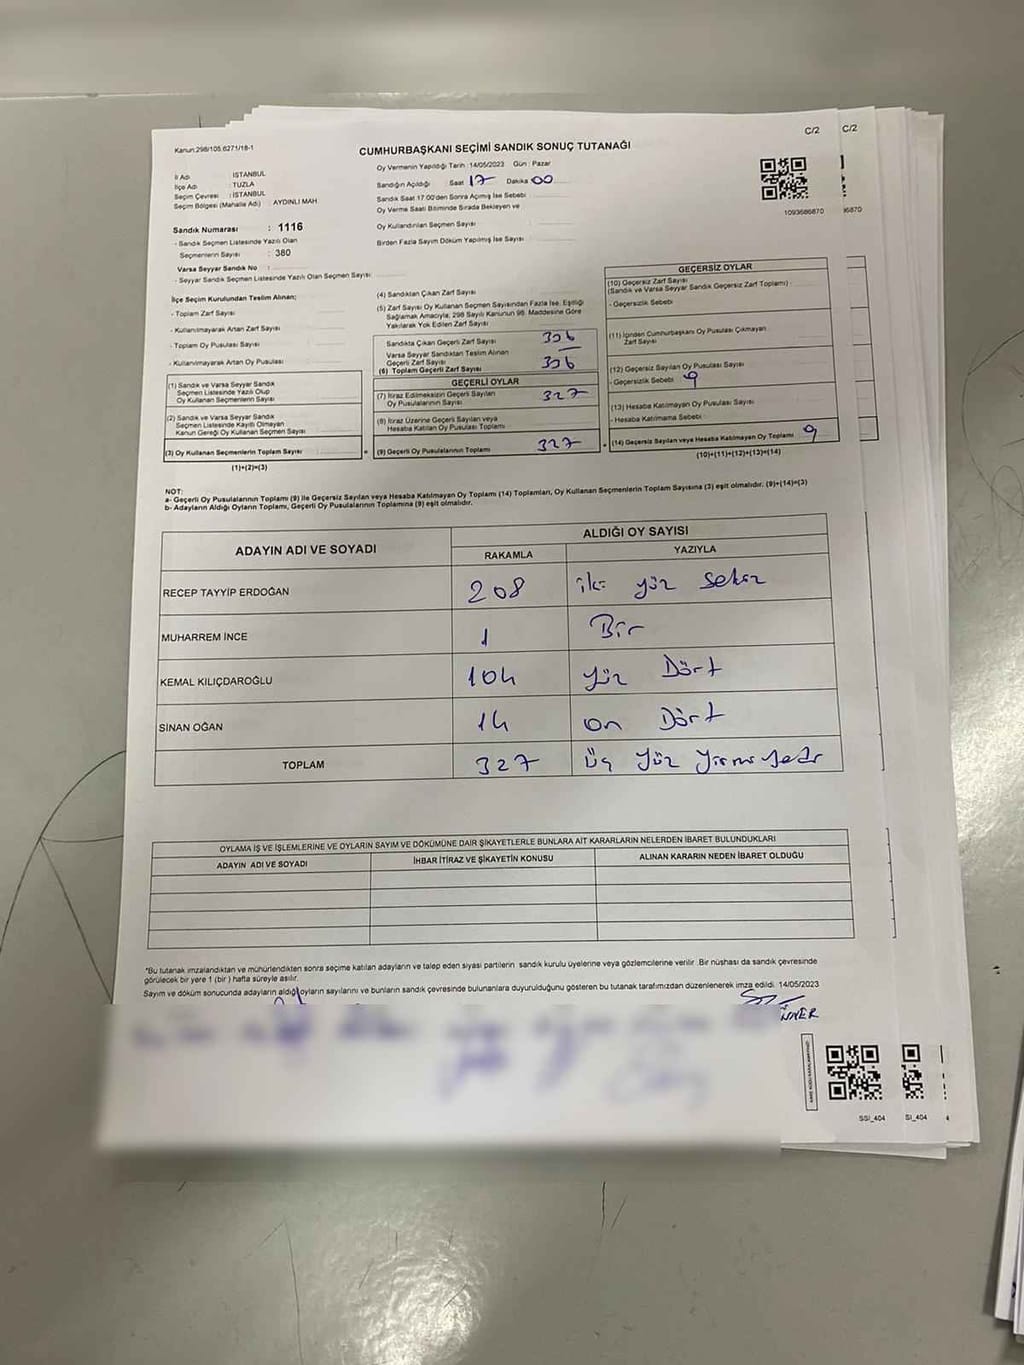 C/2
C/2
Kanun:298/105.6271/18-1
CUMHURBAŞKANI SEÇİMİ SANDIK SONUÇ TUTANAĞI
İl Adı : İSTANBUL
İlçe Adı : TUZLA
Seçim Çevresi : İSTANBUL
Seçim Bölgesi (Mahalle Adı) : AYDINLI MAH
Oy Vermenin Yapıldığı Tarih : 14/05/2023 Gün : Pazar
Sandığın Açıldığı Saat 17 Dakika 00
Sandık Saat 17:00'den Sonra Açımış İse Sebebi
Oy Verme Saati Bitiminde Sırada Bekleyen ve
Oy Kullandırılan Seçmen Sayısı :
Birden Fazla Sayım Döküm Yapılmış İse Sayısı :
1093686870
Sandık Numarası : 1116
- Sandık Seçmen Listesinde Yazılı Olan
Seçmenlerin Sayısı : 380
Varsa Seyyar Sandık No :
- Seyyar Sandık Seçmen Listesinde Yazılı Olan Seçmen Sayısı :
İlçe Seçim Kurulundan Teslim Alınan;
- Toplam Zarf Sayısı
- Kullanılmayarak Artan Zarf Sayısı
- Toplam Oy Pusulası Sayısı
- Kullanılmayarak Artan Oy Pusulası
(1) Sandık ve Varsa Seyyar Sandık
Seçmen Listesinde Yazılı Olup
Oy Kullanan Seçmenlerin Sayısı
(2) Sandık ve Varsa Seyyar Sandık
Seçmen Listesinde Kayıtlı Olmayan
Kanun Gereği Oy Kullanan Seçmen Sayısı
(3) Oy Kullanan Seçmenlerin Toplam Sayısı
(1)+(2)=(3)
(4) Sandıktan Çıkan Zarf Sayısı
(5) Zarf Sayısı Oy Kullanan Seçmen Sayısından Fazla İse, Eşitliği
Sağlamak Amacıyla; 298 Sayılı Kanunun 98. Maddesine Göre
Yakılarak Yok Edilen Zarf Sayısı
Sandıkta Çıkan Geçerli Zarf Sayısı 336
Varsa Seyyar Sandıktan Teslim Alınan
Geçerli Zarf Sayısı
(6) Toplam Geçerli Zarf Sayısı 336
GEÇERLİ OYLAR
(7) İtiraz Edilmeksizin Geçerli Sayılan
Oy Pusulalarının Sayısı 327
(8) İtiraz Üzerine Geçerli Sayılan veya
Hesaba Katılan Oy Pusulası Toplamı
(9) Geçerli Oy Pusulalarının Toplamı 327
GEÇERSİZ OYLAR
(10) Geçersiz Zarf Sayısı
(Sandık ve Varsa Seyyar Sandık Geçersiz Zarf Toplamı)
- Geçersizlik Sebebi
(11) İçinden Cumhurbaşkanı Oy Pusulası Çıkmayan
Zarf Sayısı
(12) Geçersiz Sayılan Oy Pusulası Sayısı
- Geçersizlik Sebebi 9
(13) Hesaba Katılmayan Oy Pusulası Sayısı
- Hesaba Katılmama Sebebi
(14) Geçersiz Sayılan veya Hesaba Katılmayan Oy Toplamı 9
(10)+(11)+(12)+(13)=(14)
NOT:
a- Geçerli Oy Pusulalarının Toplamı (9) ile Geçersiz Sayılan veya Hesaba Katılmayan Oy Toplamı (14) Toplamları, Oy Kullanan Seçmenlerin Toplam Sayısına (3) eşit olmalıdır. (9)+(14)=(3)
b- Adayların Aldığı Oyların Toplamı, Geçerli Oy Pusulalarının Toplamına (9) eşit olmalıdır.
ADAYIN ADI VE SOYADI
ALDIĞI OY SAYISI
RAKAMLA YAZIYLA
RECEP TAYYİP ERDOĞAN 208 iki yüz sekiz
MUHARREM İNCE 1 Bir
KEMAL KILIÇDAROĞLU 104 yüz Dört
SİNAN OĞAN 14 on Dört
TOPLAM 327 üç yüz yirmi yedi
OYLAMA İŞ VE İŞLEMLERİNE VE OYLARIN SAYIM VE DÖKÜMÜNE DAİR ŞİKAYETLERLE BUNLARA AİT KARARLARIN NELERDEN İBARET BULUNDUKLARI
ADAYIN ADI VE SOYADI İHBAR İTİRAZ VE ŞİKAYETİN KONUSU ALINAN KARARIN NEDEN İBARET OLDUĞU
*Bu tutanak imzalandıktan ve mühürlendikten sonra seçime katılan adayların ve talep eden siyasi partilerin sandık kurulu üyelerine veya gözlemcilerine verilir. Bir nüshası da sandık çevresinde
görülecek bir yere 1 (bir) hafta süreyle asılır.
Sayım ve döküm sonucunda adayların aldığı oyların sayılarını ve bunların sandık çevresinde bulunanlara duyurulduğunu gösteren bu tutanak tarafımızdan düzenlenerek imza edildi. 14/05/2023
SSI_404
SI_404